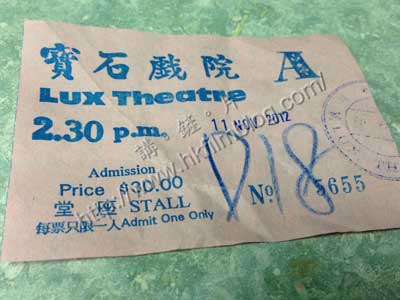 寶石戲院 A
Lux Theatre
2.30 p.m. 11 NOV 2012
Admission
Price $30.00
堂座 STALL
D18
No 5655
每票只限一人 Admit One Only
http://www.hkfilmblog.com/